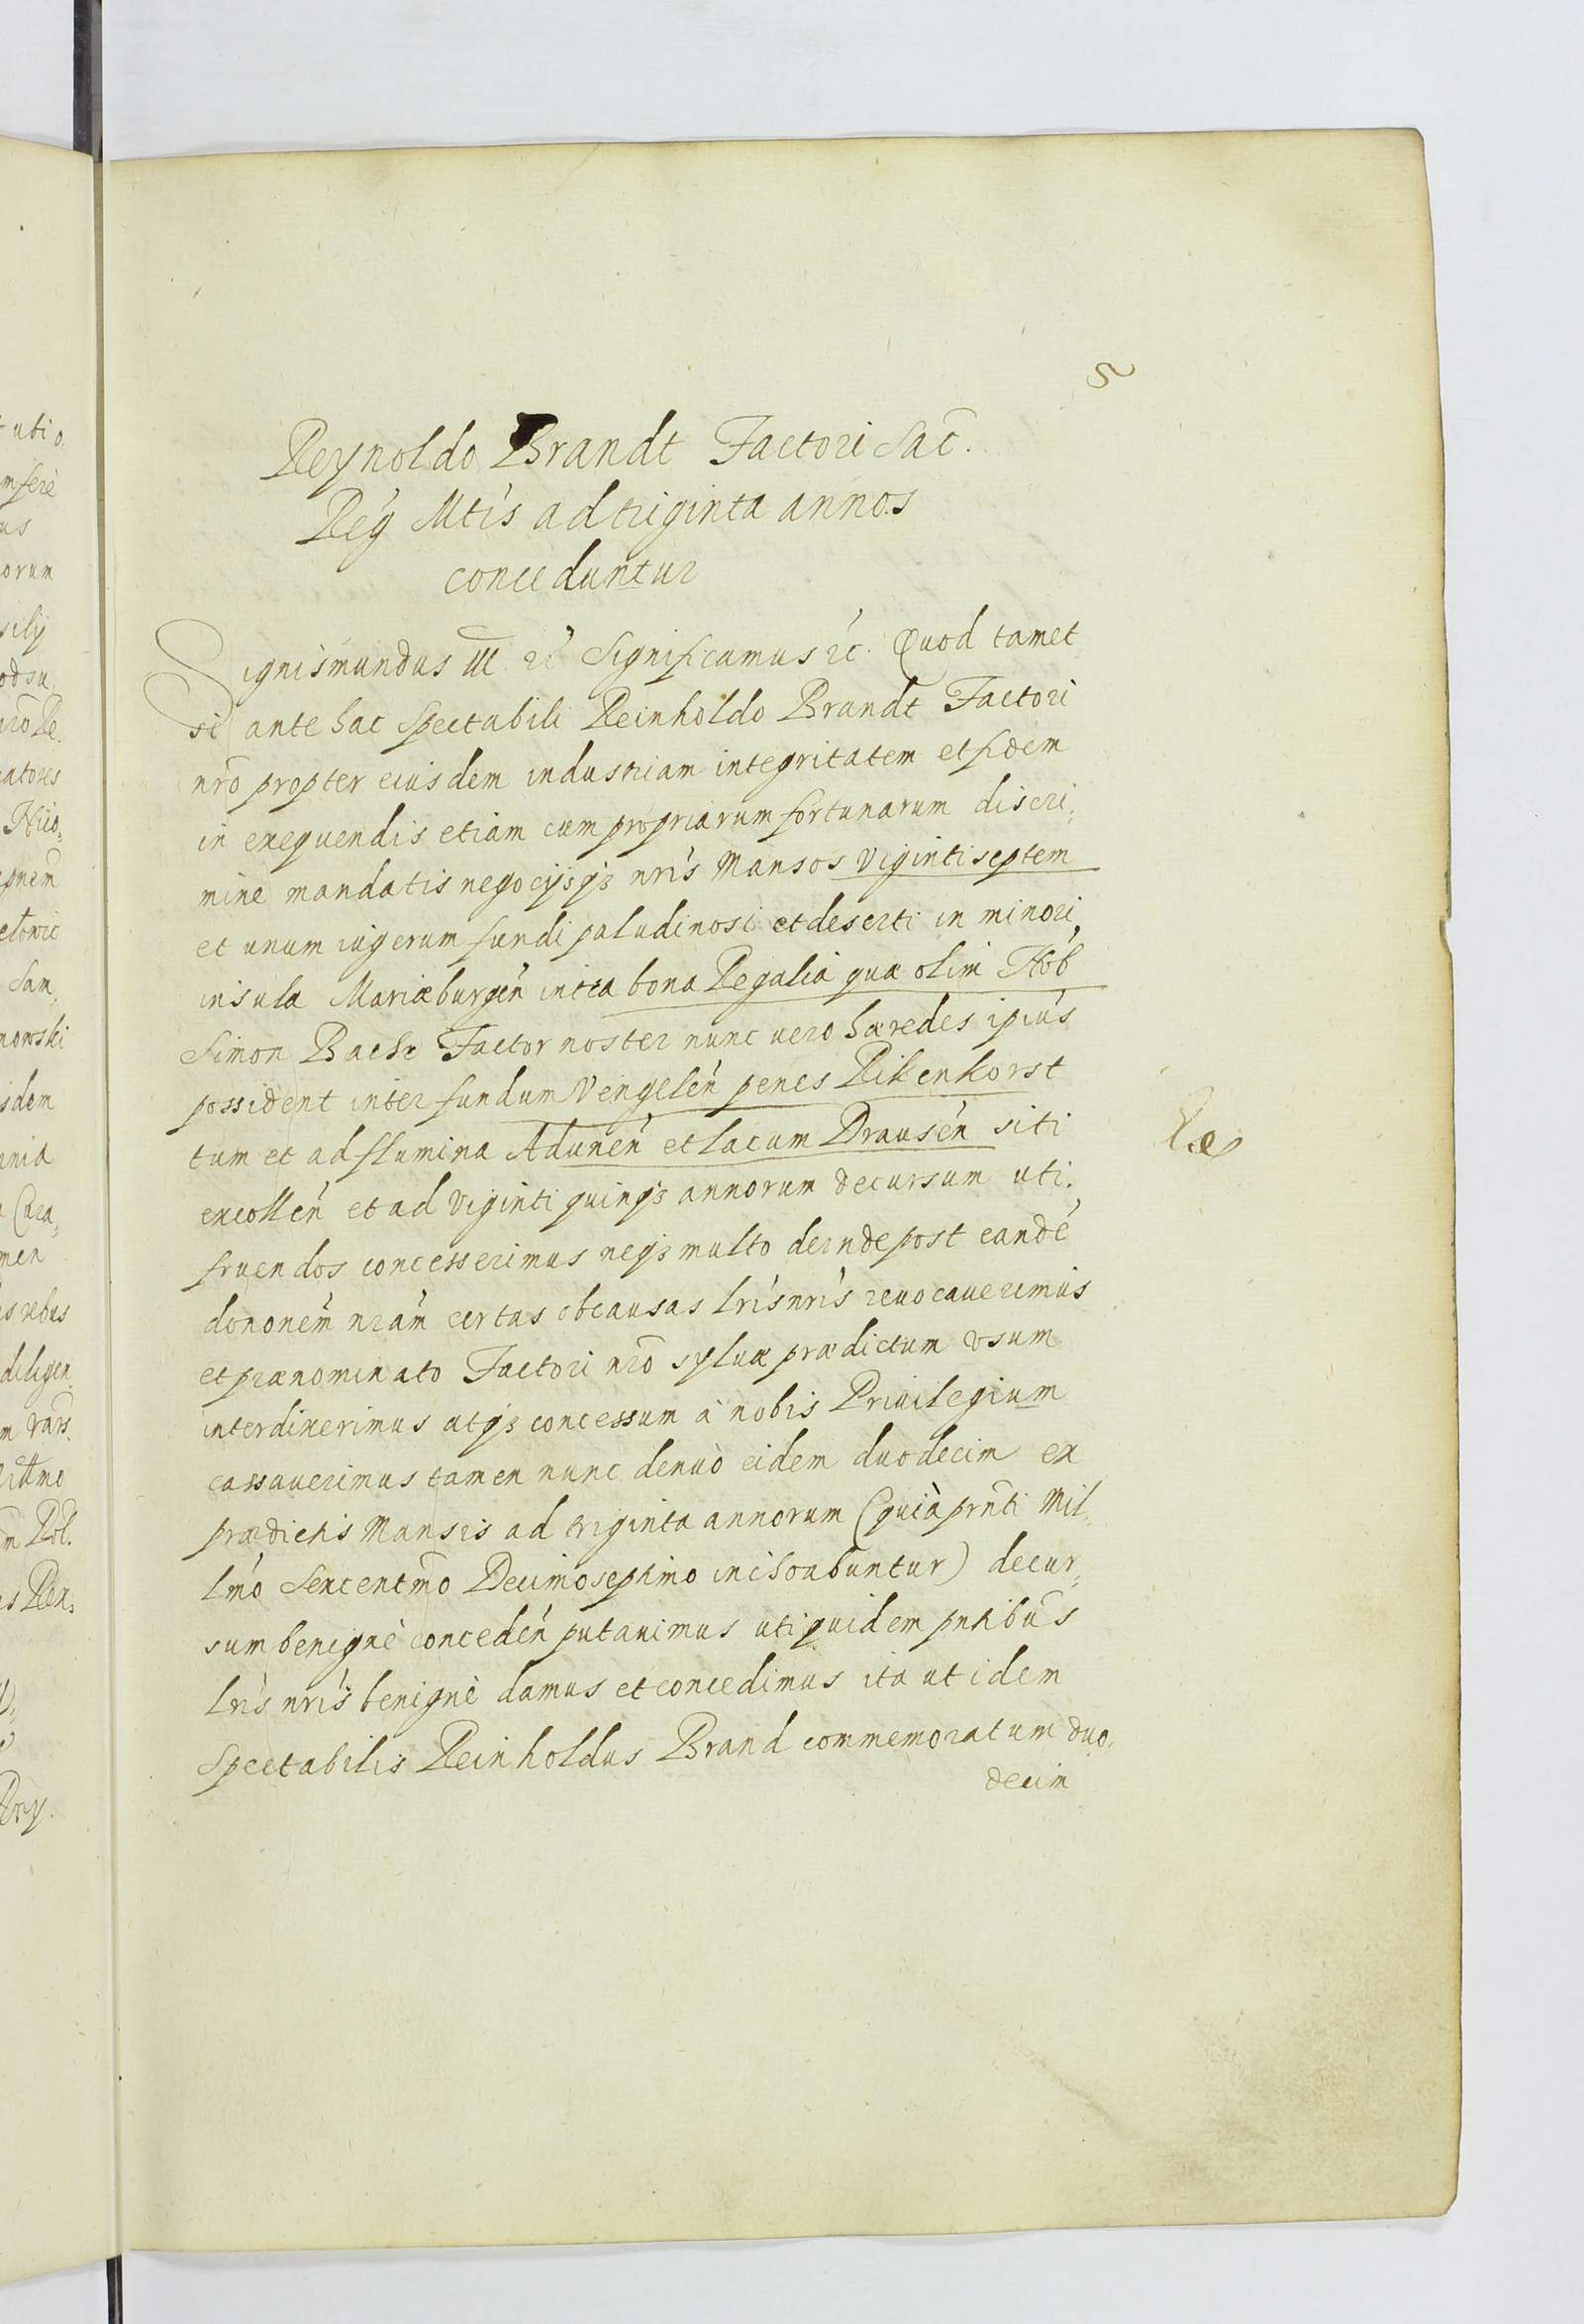 5
Reynoldo Brandt Factori Sac.
Reg Mtis ad triginta annos
conceduntur
Signismundus III etc Significamus etc. Quod tamet
si ante hac Spectabili Reinholdo Brandt Factori
nro propter eiusdem industriam integritatem et fidem
in exequendis etiam cum propriarum fortunarum discri,
mine mandatis negocijsq; nris Mansos Viginti septem
et unum iugerum fundi paludinosi et deserti in minori,
insula Mariæburgen intra bona Regalia quæ olim Nob
Simon Bachr Factor noster nunc uero hæredes ipius
possident inter fundum Vengelen penes Rikenhorst
tum et ad flumina Adunen et lacum Drausen siti
excollen et ad Viginti quinq; annorum decursum uti,
fruendos concesserimus neq; multo deinde post eande
dononem nram certas ob causas lris nris reuocauerimus
et prænominato Factori nro syluæ prædictum usum
interdixerimus atq; concessum à nobis Priuilegium
cassauerimus tamen nunc denuò eidem duodecim ex
prædictis Mansis ad triginta annorum (qui à prnti Mil,
lmo Sexcentmo Decimoseptimo inchoabuntur) decur,
sum benignè conceden putauimus uti quidem pntibus
lris nris benignè damus et concedimus ita ut idem
Spectabilis Reinholdus Brand commemoratum duo,
decim